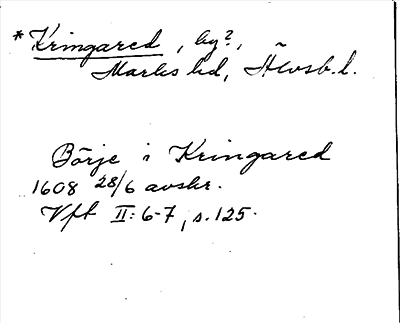 *Kringared, by?,
Marks hd, Älvsb. l.
Börje i Kringared
1608 28/6 avskr.
Vft II: 6-7, s. 125.